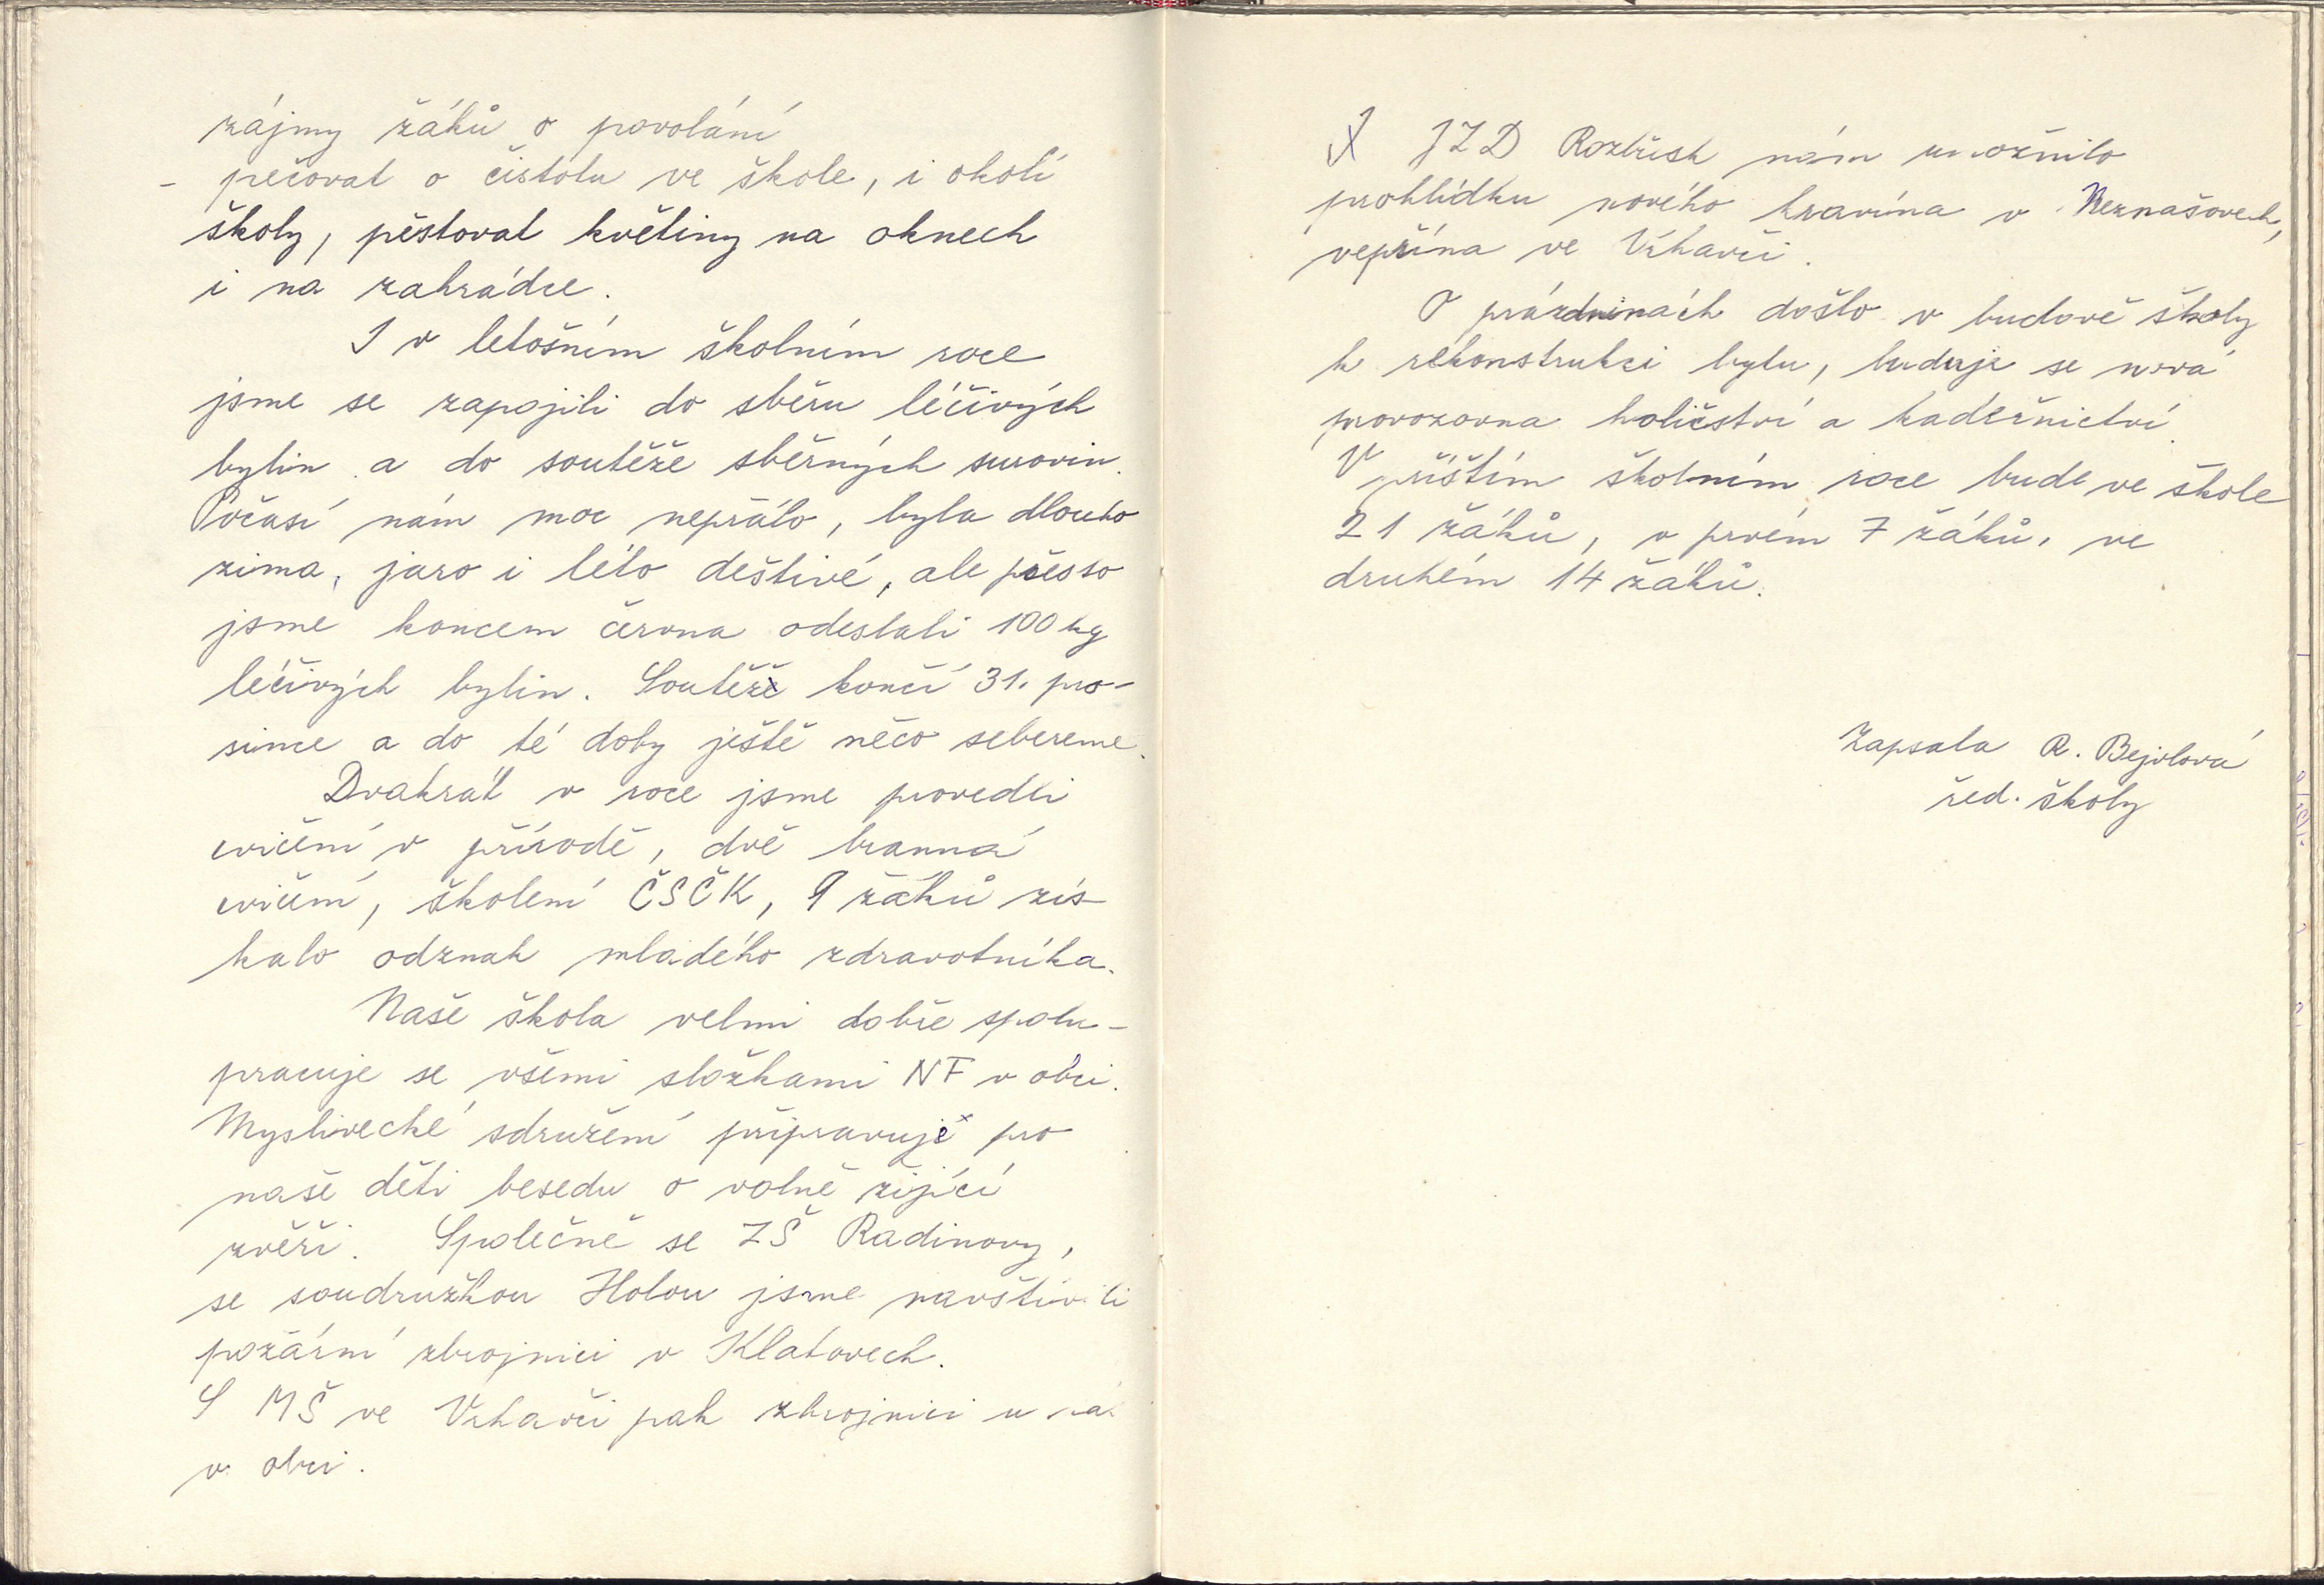 zájmy žáků o povolání
- pečovat o čistotu ve škole, i okolí
školy, pěstovat květiny na oknech
i na zahrádce.
I v letošním školním roce
jsme se zapojili do sběru léčivých
bylin a do soutěže sběrných surovin.
Počasí nám moc nepřálo, byla dlouho
zima, jaro i léto deštivé, ale přesto
jsme koncem června odeslali 100 kg
léčivých bylin. Soutěž končí 31. pro-
since a do té doby ještě něco sebereme.
Dvakrát v roce jsme provedli
cvičení v přírodě, dvě branná
cvičení, školení ČSČK, 9 žáků zís-
kalo odznak mladého zdravotníka.
Naše škola velmi dobře spolu-
pracuje se všemi složkami NF v obci.
Myslivecké sdružení připravuje pro
naše děti besedu o volně žijící
zvěři. Společně se ZŠ Radinovy,
se soudružkou Holou jsme navštívili
požární zbrojnici v Klatovech.
S MŠ ve Vrhavči pak zbrojnici u
v obci.
JZD Rozbřesk nám umožnilo
prohlídku nového kravína v Neznašovech,
vepřína ve Vrhavči.
O prázdninách došlo v budově školy
k rekonstrukci bytu, buduje se nová
provozovna holičství a kadeřnictví.
V příštím školním roce bude ve škole
21 žáků, v prvém 7 žáků, ve
druhém 14 žáků.
Zapsala R. Bejvlová
řed. školy